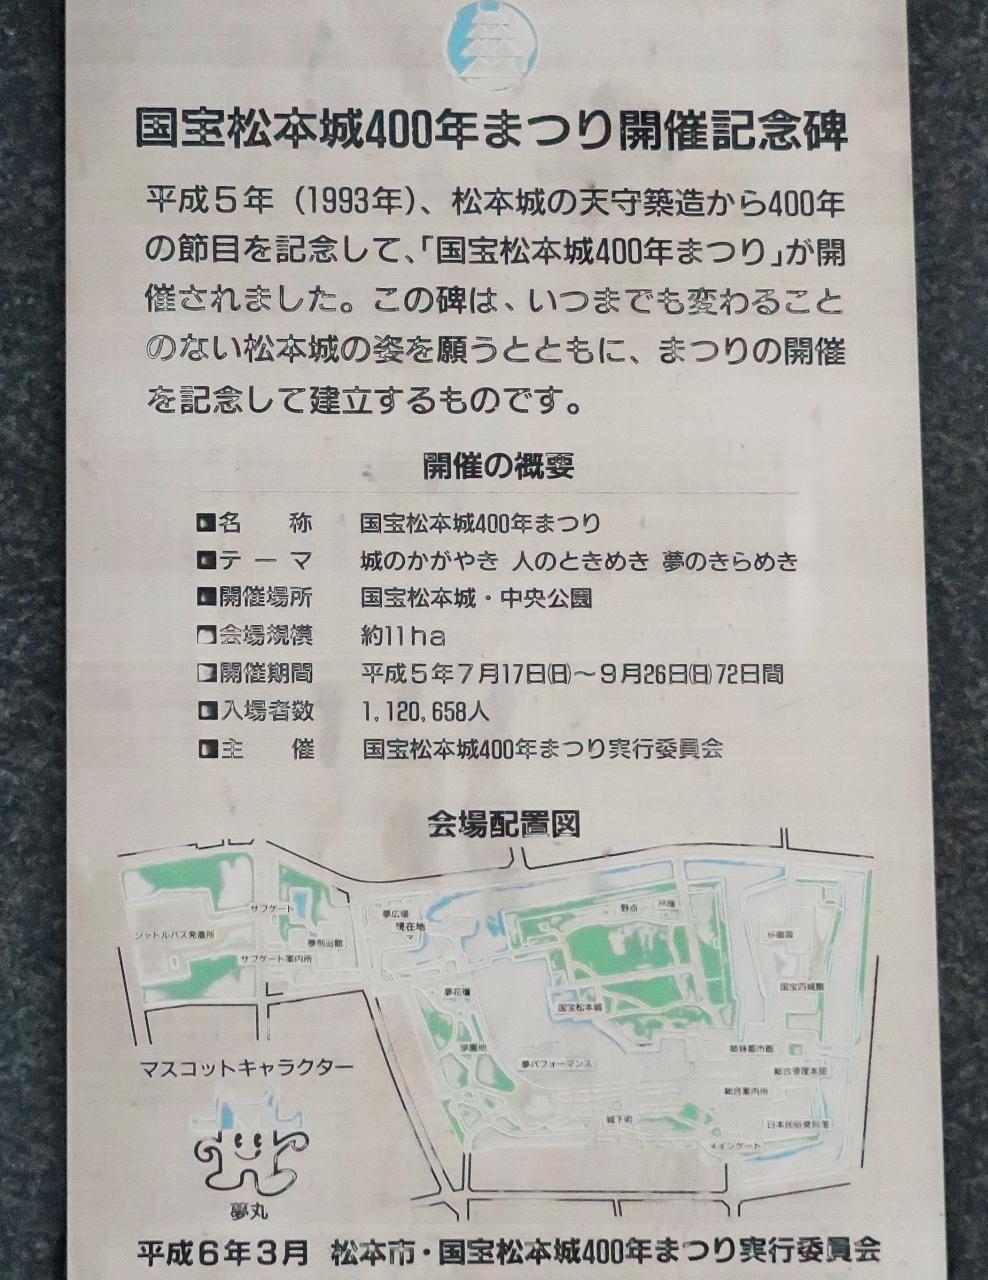 国宝松本城400年まつり開催記念碑
平成5年（1993年）、松本城の天守築造から400年
の節目を記念して、「国宝松本城400年まつり」が開
催されました。この碑は、いつまでも変わること
のない松本城の姿を願うとともに、まつりの開催
を記念して建立するものです。
開催の概要
■名　称　国宝松本城400年まつり
■テーマ　城のかがやき 人のときめき 夢のきらめき
■開催場所　国宝松本城・中央公園
■会場規模　約11ha
■開催期間　平成5年7月17日(日)～9月26日(日)72日間
■入場者数　1,120,658人
■主　催　国宝松本城400年まつり実行委員会
会場配置図
サブゲート
夢広場
現在地
野点
シャトルバス発着所
夢劇遊館
サブゲート案内所
夢花壇
国宝松本城
国宝四城館
夢園地
夢パフォーマンス
姉妹都市館
総合管理本部
総合案内所
城下町
日本民俗資料館
メインゲート
マスコットキャラクター
夢丸
平成6年3月 松本市・国宝松本城400年まつり実行委員会